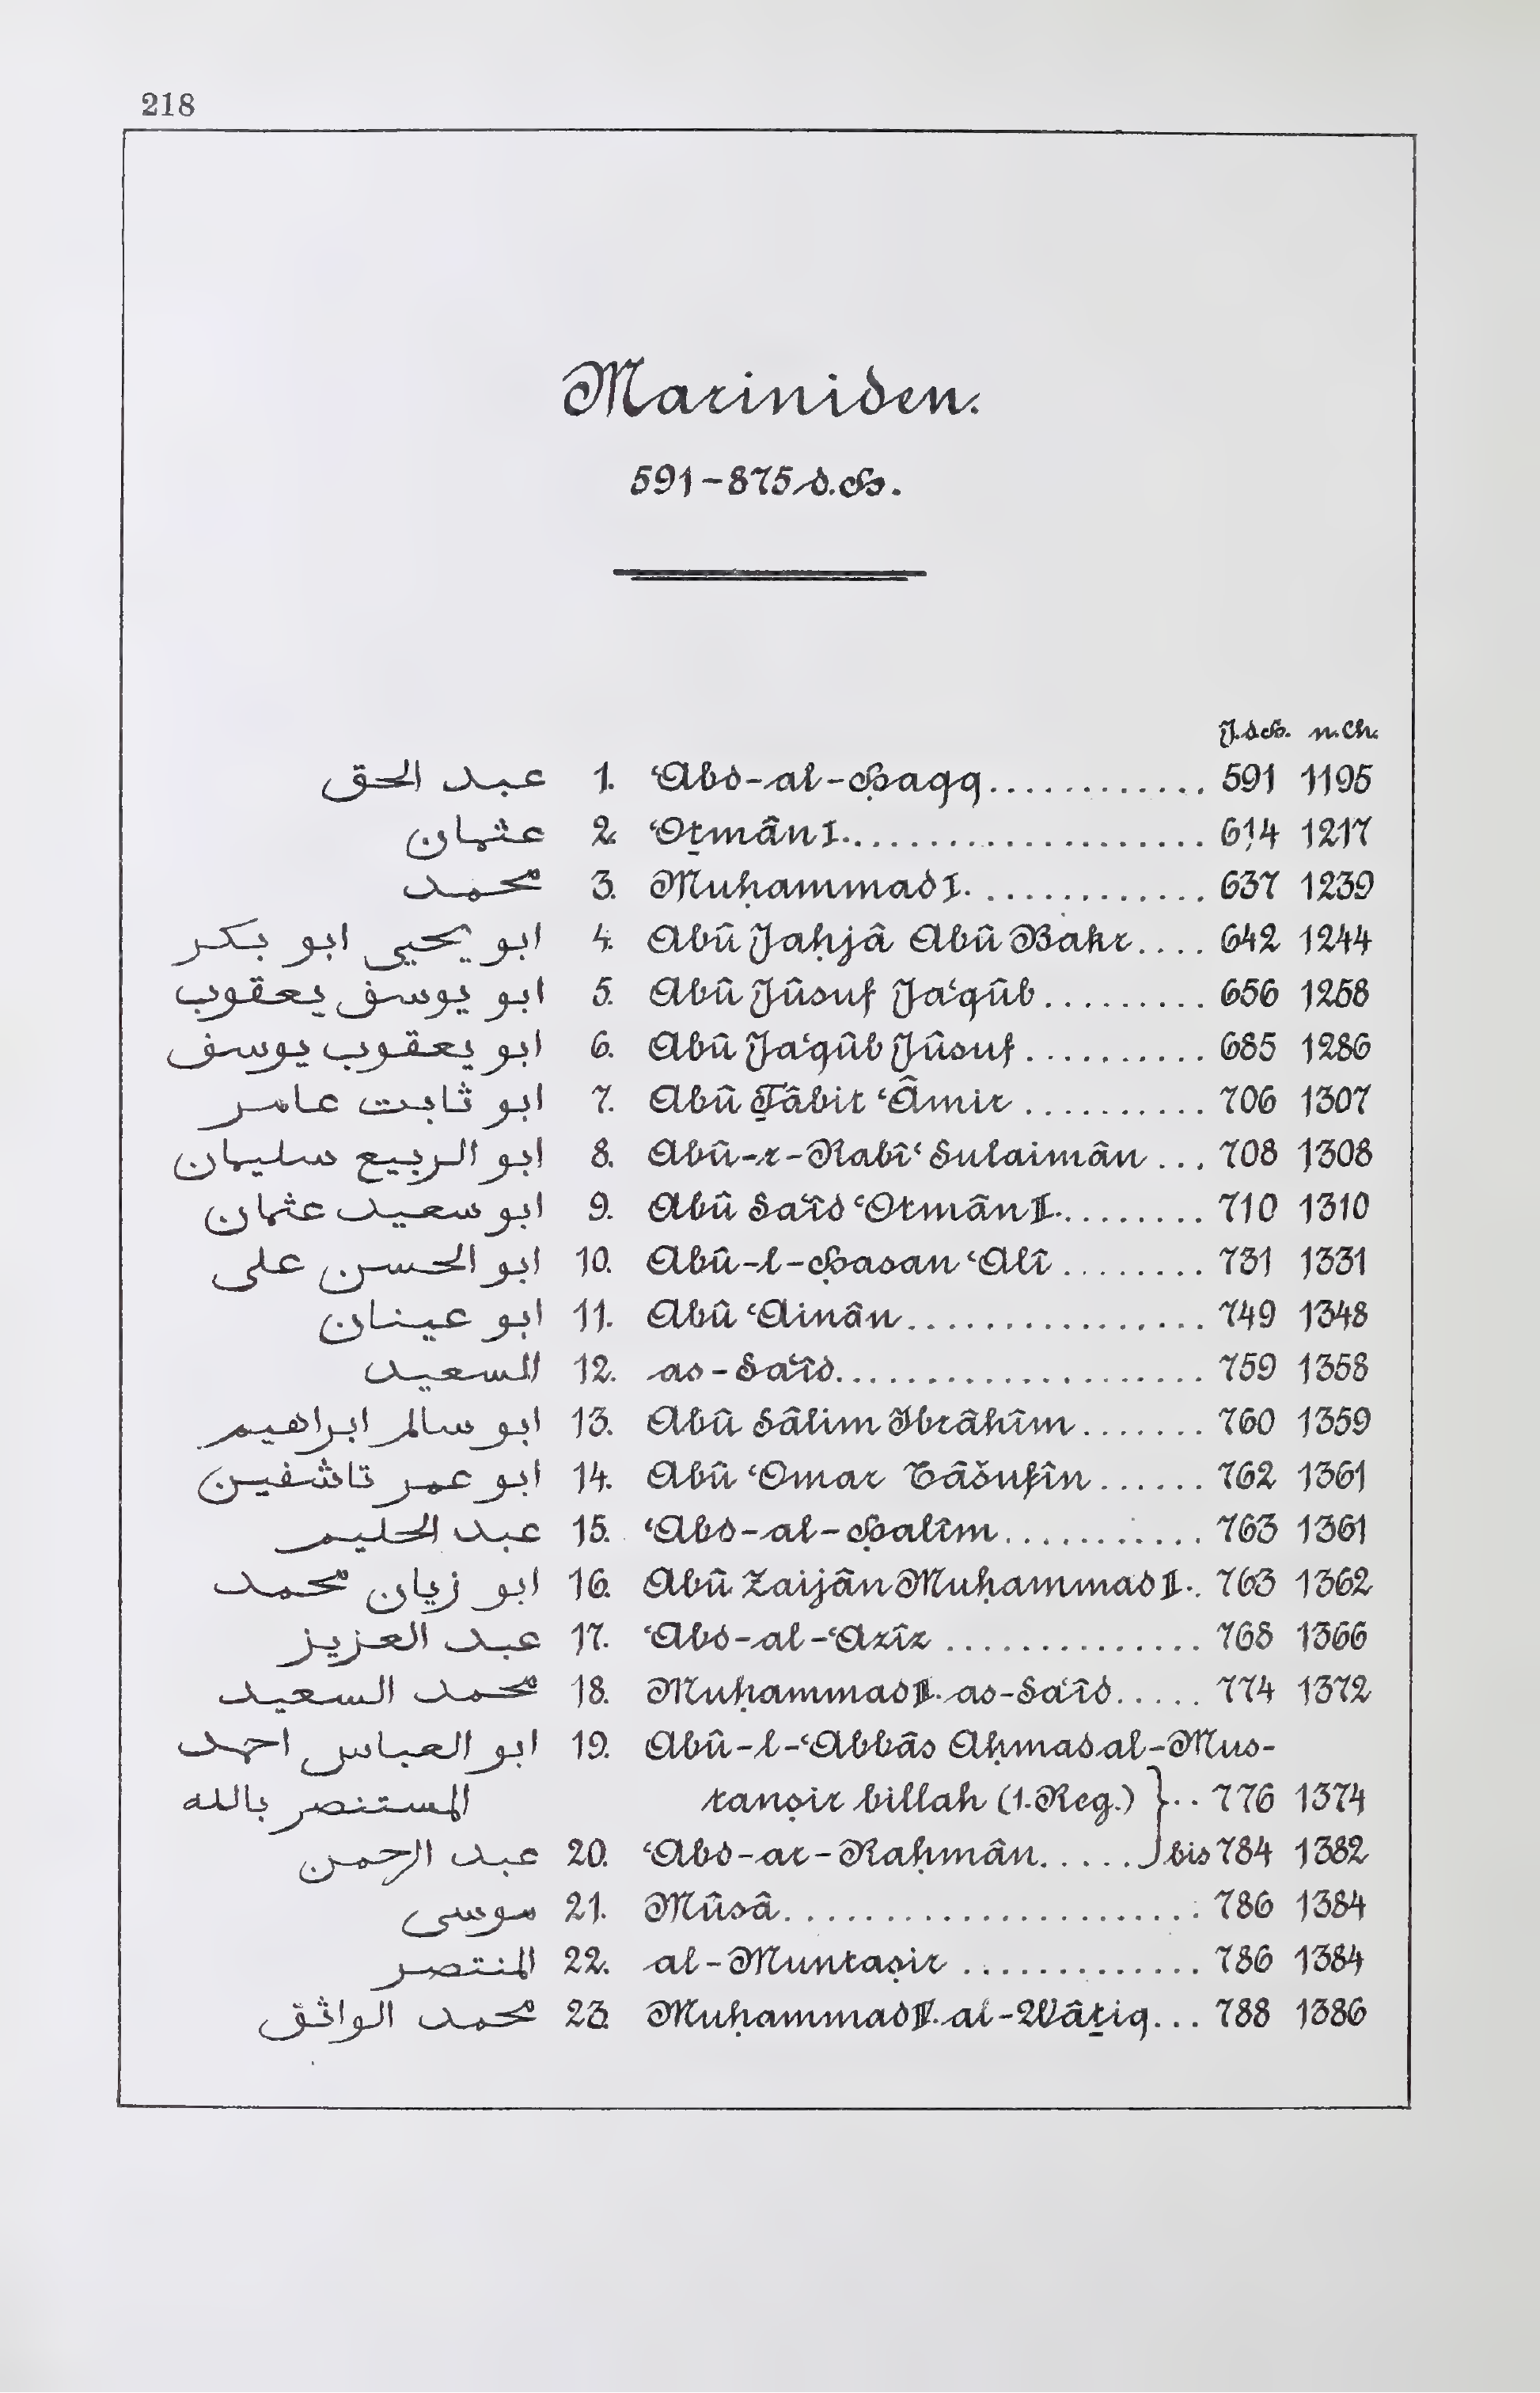 218
Mariniden.
591-875 d.H.
J.d.H. n.Ch.
عبد الحق 1. ʿAbd-al-Ḥaqq............. 591 1195
عثمان 2. ʿOṯmân I...................... 614 1217
محمد 3. Muḥammad I. ............. 637 1239
ابو يحيى ابو بكر 4. Abû Jaḥjâ Abû Bakr.... 642 1244
ابو يوسف يعقوب 5. Abû Jûsuf Jaʿqûb......... 656 1258
ابو يعقوب يوسف 6. Abû Jaʿqûb Jûsuf.......... 685 1286
ابو ثابت عامر 7. Abû Ṯâbit ʿÂmir .......... 706 1307
ابو الربيع سليمان 8. Abû-r-Rabîʿ Sulaimân ... 708 1308
ابو سعيد عثمان 9. Abû Saʿîd ʿOtmân II......... 710 1310
ابو الحسن على 10. Abû-l-Ḥasan ʿAlî........ 731 1331
ابو عينان 11. Abû ʿAinân................ 749 1348
السعيد 12. as-Saʿîd.................... 759 1358
ابو سالم ابراهيم 13. Abû Sâlim Ibrâhîm....... 760 1359
ابو عمر تاشفين 14. Abû ʿOmar Tâšufîn...... 762 1361
عبد الحليم 15. ʿAbd-al-Ḥalîm........... 763 1361
ابو زيان محمد 16. Abû Zaijân Muḥammad II.. 763 1362
عبد العزيز 17. ʿAbd-al-ʿAzîz .............. 768 1366
محمد السعيد 18. Muḥammad III. as-Saʿîd..... 774 1372
ابو العباس احمد 19. Abû-l-ʿAbbâs Aḥmad al-Mus-
المستنصر بالله tanṣir billah (1. Reg.) }.. 776 1374
عبد الرحمن 20. ʿAbd-ar-Raḥmân..... bis 784 1382
موسى 21. Mûsâ....................... 786 1384
المنتصر 22. al-Muntaṣir ............. 786 1384
محمد الواثق 23. Muḥammad IV. al-Wâṯiq... 788 1386